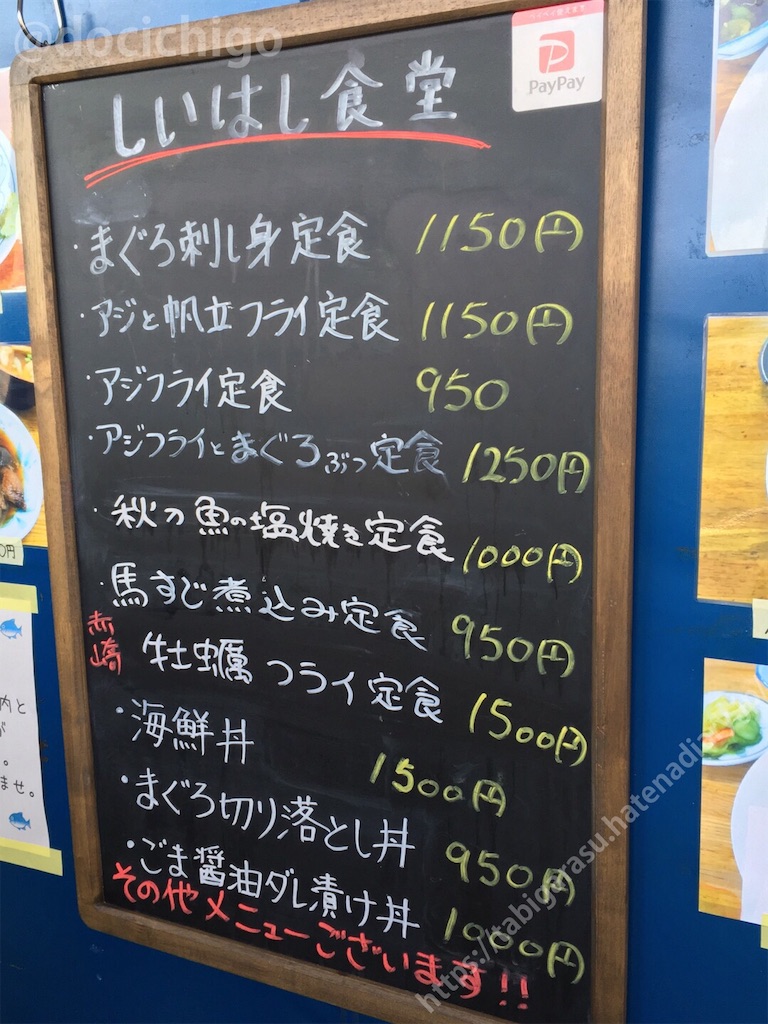 @docichigo
ペイペイ使えます
PayPay
しいはし食堂
・まぐろ刺し身定食 1150円
・アジと帆立フライ定食 1150円
・アジフライ定食 950
・アジフライとまぐろぶつ定食 1250円
・秋刀魚の塩焼き定食 1000円
・馬すじ煮込み定食 950円
赤崎 牡蠣フライ定食 1500円
・海鮮丼 1500円
・まぐろ切り落とし丼 950円
・ごま醤油ダレ漬け丼 1000円
その他メニューございます!!
0円
内と
。
ませ。